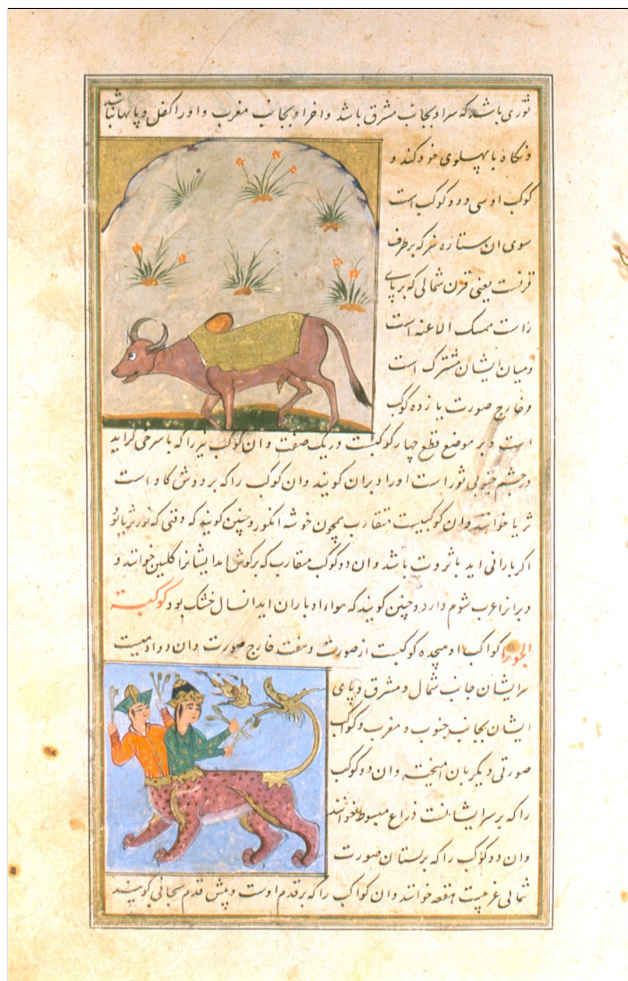 ثوری باشد که سر او بجانب مشرق باشد و اخر او بجانب مغرب و او را کفل و پایها نباشد
و نکاه با پهلوی خود کند و
کوکب او سی و دو کوکب است
سوی ان ستاره نیر که بر طرف
قرنست یعنی قرن شمالی که بر پای
راست ممسک الاعنه است
و میان ایشان مشترک است
و خارج صورت یازده کوکب
است و بر موضع قطع چهار کوکبست در یک صفت و ان کوکب نیر را که با سرخی کراید
در چشم جنوبی ثور است او را دبران کویند و ان کوکب را که بر دوش کاو است
ثریا خوانند و ان کوکبیست متقارب همچون خوشه انکور و چنین کویند که وقتی که نور ثریا نو
اکر بارانی اید با ثروت باشد و ان دو کوکب متقارب که بر کوش اند ایشانرا کلبین خوانند و
دبران را عرب شوم دارد و چنین کویند که هواء او باران اید انسال خشک بود کوکبة
الجوزا کواکب او هیجده کوکبست از صورت و هفت خارج صورت و ان دو ادمیست
سر ایشان جانب شمال و مشرق و پای
ایشان بجانب جنوب و مغرب و کوکب
صورتی دیکر بان امیخته و ان دو کوکب
را که بر سر ایشانست ذراع مبسوط خوانند
و ان دو کوکب را که بر پستان صورت
شمالی غربیست هقعه خوانند و ان کواکب را که بر قدم اوست و پیش قدم سحابی کویند